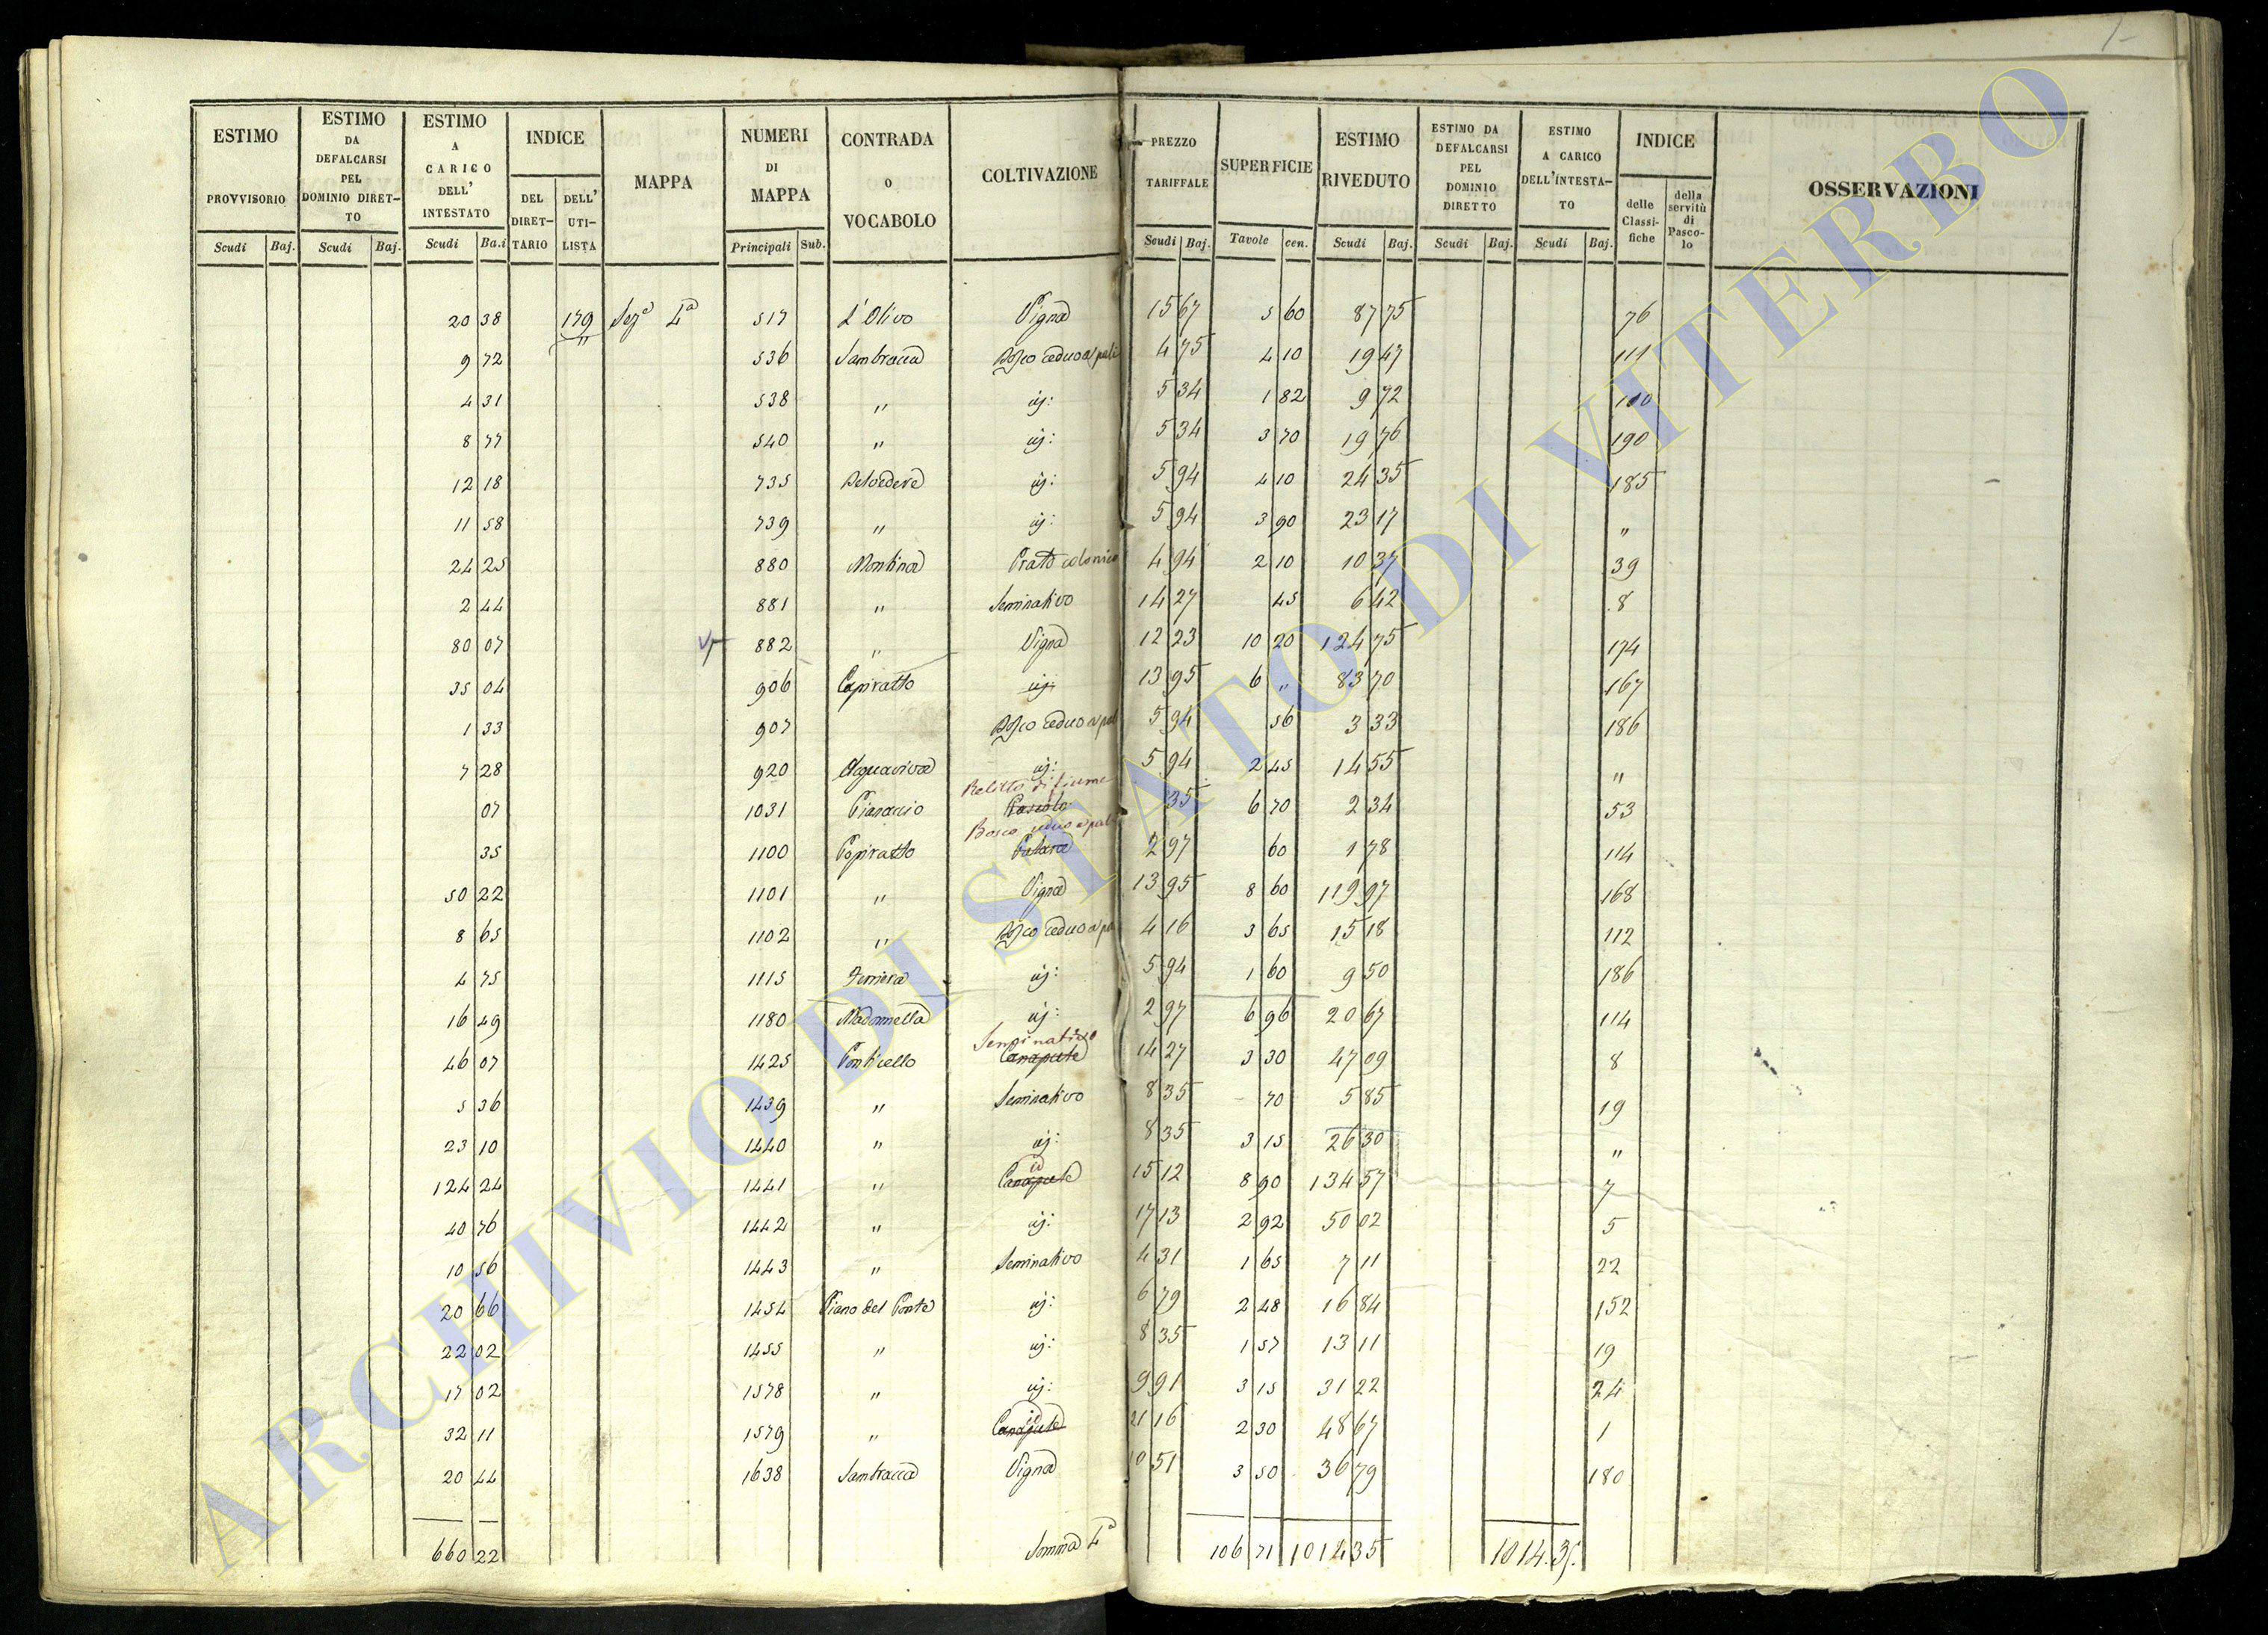 ESTIMO PROVVISORIO | ESTIMO DA DEFALCARSI PEL DOMINIO DIRET-TO | ESTIMO A CARICO DELL' INTESTATO | INDICE | MAPPA | NUMERI DI MAPPA | CONTRADA O VOCABOLO | COLTIVAZIONE | PREZZO TARIFFALE | SUPERFICIE | ESTIMO RIVEDUTO | ESTIMO DA DEFALCARSI PEL DOMINIO DIRETTO | ESTIMO A CARICO DELL'INTESTA-TO | INDICE | OSSERVAZIONI
Scudi | Baj. | Scudi | Baj. | Scudi | Ba.i | DEL DIRET-TARIO | DELL' UTI-LISTA | Principali | Sub. | Scudi | Baj. | Tavole | cen. | Scudi | Baj. | Scudi | Baj. | Scudi | Baj. | delle Classi-fiche | della servitù di Pasco-lo
20 38 | 179 | Sez.a I.a | 517 | L'Olivo | Vigna | 15 67 | 5 60 | 87 75 | 76
9 72 | " | 536 | Sambracca | Bosco ceduo a pali | 4 75 | 4 10 | 19 47 | 111
4 31 | 538 | " | id: | 5 34 | 1 82 | 9 72 | 110
8 77 | 540 | " | id: | 5 34 | 3 70 | 19 76 | 190
12 18 | 735 | Belvedere | id: | 5 94 | 4 10 | 24 35 | 185
11 58 | 739 | " | id: | 5 94 | 3 90 | 23 17 | "
24 25 | 880 | Montina | Prato colonico | 4 94 | 2 10 | 10 37 | 39
2 44 | 881 | " | Seminativo | 14 27 | 45 | 6 42 | 8
80 07 | 882 | " | Vigna | 12 23 | 10 20 | 124 75 | 174
35 04 | 906 | Capiratto | id: | 13 95 | 6 " | 83 70 | 167
1 33 | 907 | Bosco ceduo a pal | 5 94 | 56 | 3 33 | 186
7 28 | 920 | Acquaviva | id: | 5 94 | 2 45 | 14 55 | "
Relitto di fiume
07 | 1031 | Pianaccio | Pascolo | 35 | 6 70 | 2 34 | 53
Bosco ceduo a pali
35 | 1100 | Popiratto | 2 97 | 60 | 1 78 | 114
50 22 | 1101 | " | Vigna | 13 95 | 8 60 | 119 97 | 168
8 65 | 1102 | " | Bosco ceduo a pa | 4 16 | 3 65 | 15 18 | 112
4 75 | 1115 | Ferriera | id: | 5 94 | 1 60 | 9 50 | 186
16 49 | 1180 | Madonnella | id: | 2 97 | 6 96 | 20 67 | 114
Seminativo
46 07 | 1425 | Ponticello | Canapule | 14 27 | 3 30 | 47 09 | 8
5 36 | 1439 | " | Seminativo | 8 35 | 70 | 5 85 | 19
23 10 | 1440 | " | id: | 8 35 | 3 15 | 26 30 | "
id
124 24 | 1441 | " | Canapule | 15 12 | 8 90 | 134 57 | 7
40 76 | 1442 | " | id: | 17 13 | 2 92 | 50 02 | 5
10 56 | 1443 | " | Seminativo | 4 31 | 1 65 | 7 11 | 22
20 66 | 1454 | Piano del Ponte | id: | 6 79 | 2 48 | 16 84 | 152
22 02 | 1455 | " | id: | 8 35 | 1 57 | 13 11 | 19
17 02 | 1578 | " | id: | 9 91 | 3 15 | 31 22 | 24
id
32 11 | 1579 | " | Canapule | 21 16 | 2 30 | 48 67 | 1
20 44 | 1638 | Sambracca | Vigna | 10 51 | 3 50 | 36 79 | 180
660 22 | Somma I.a | 106 71 | 1014 35 | 1014.35.
ARCHIVIO DI STATO DI VITERBO